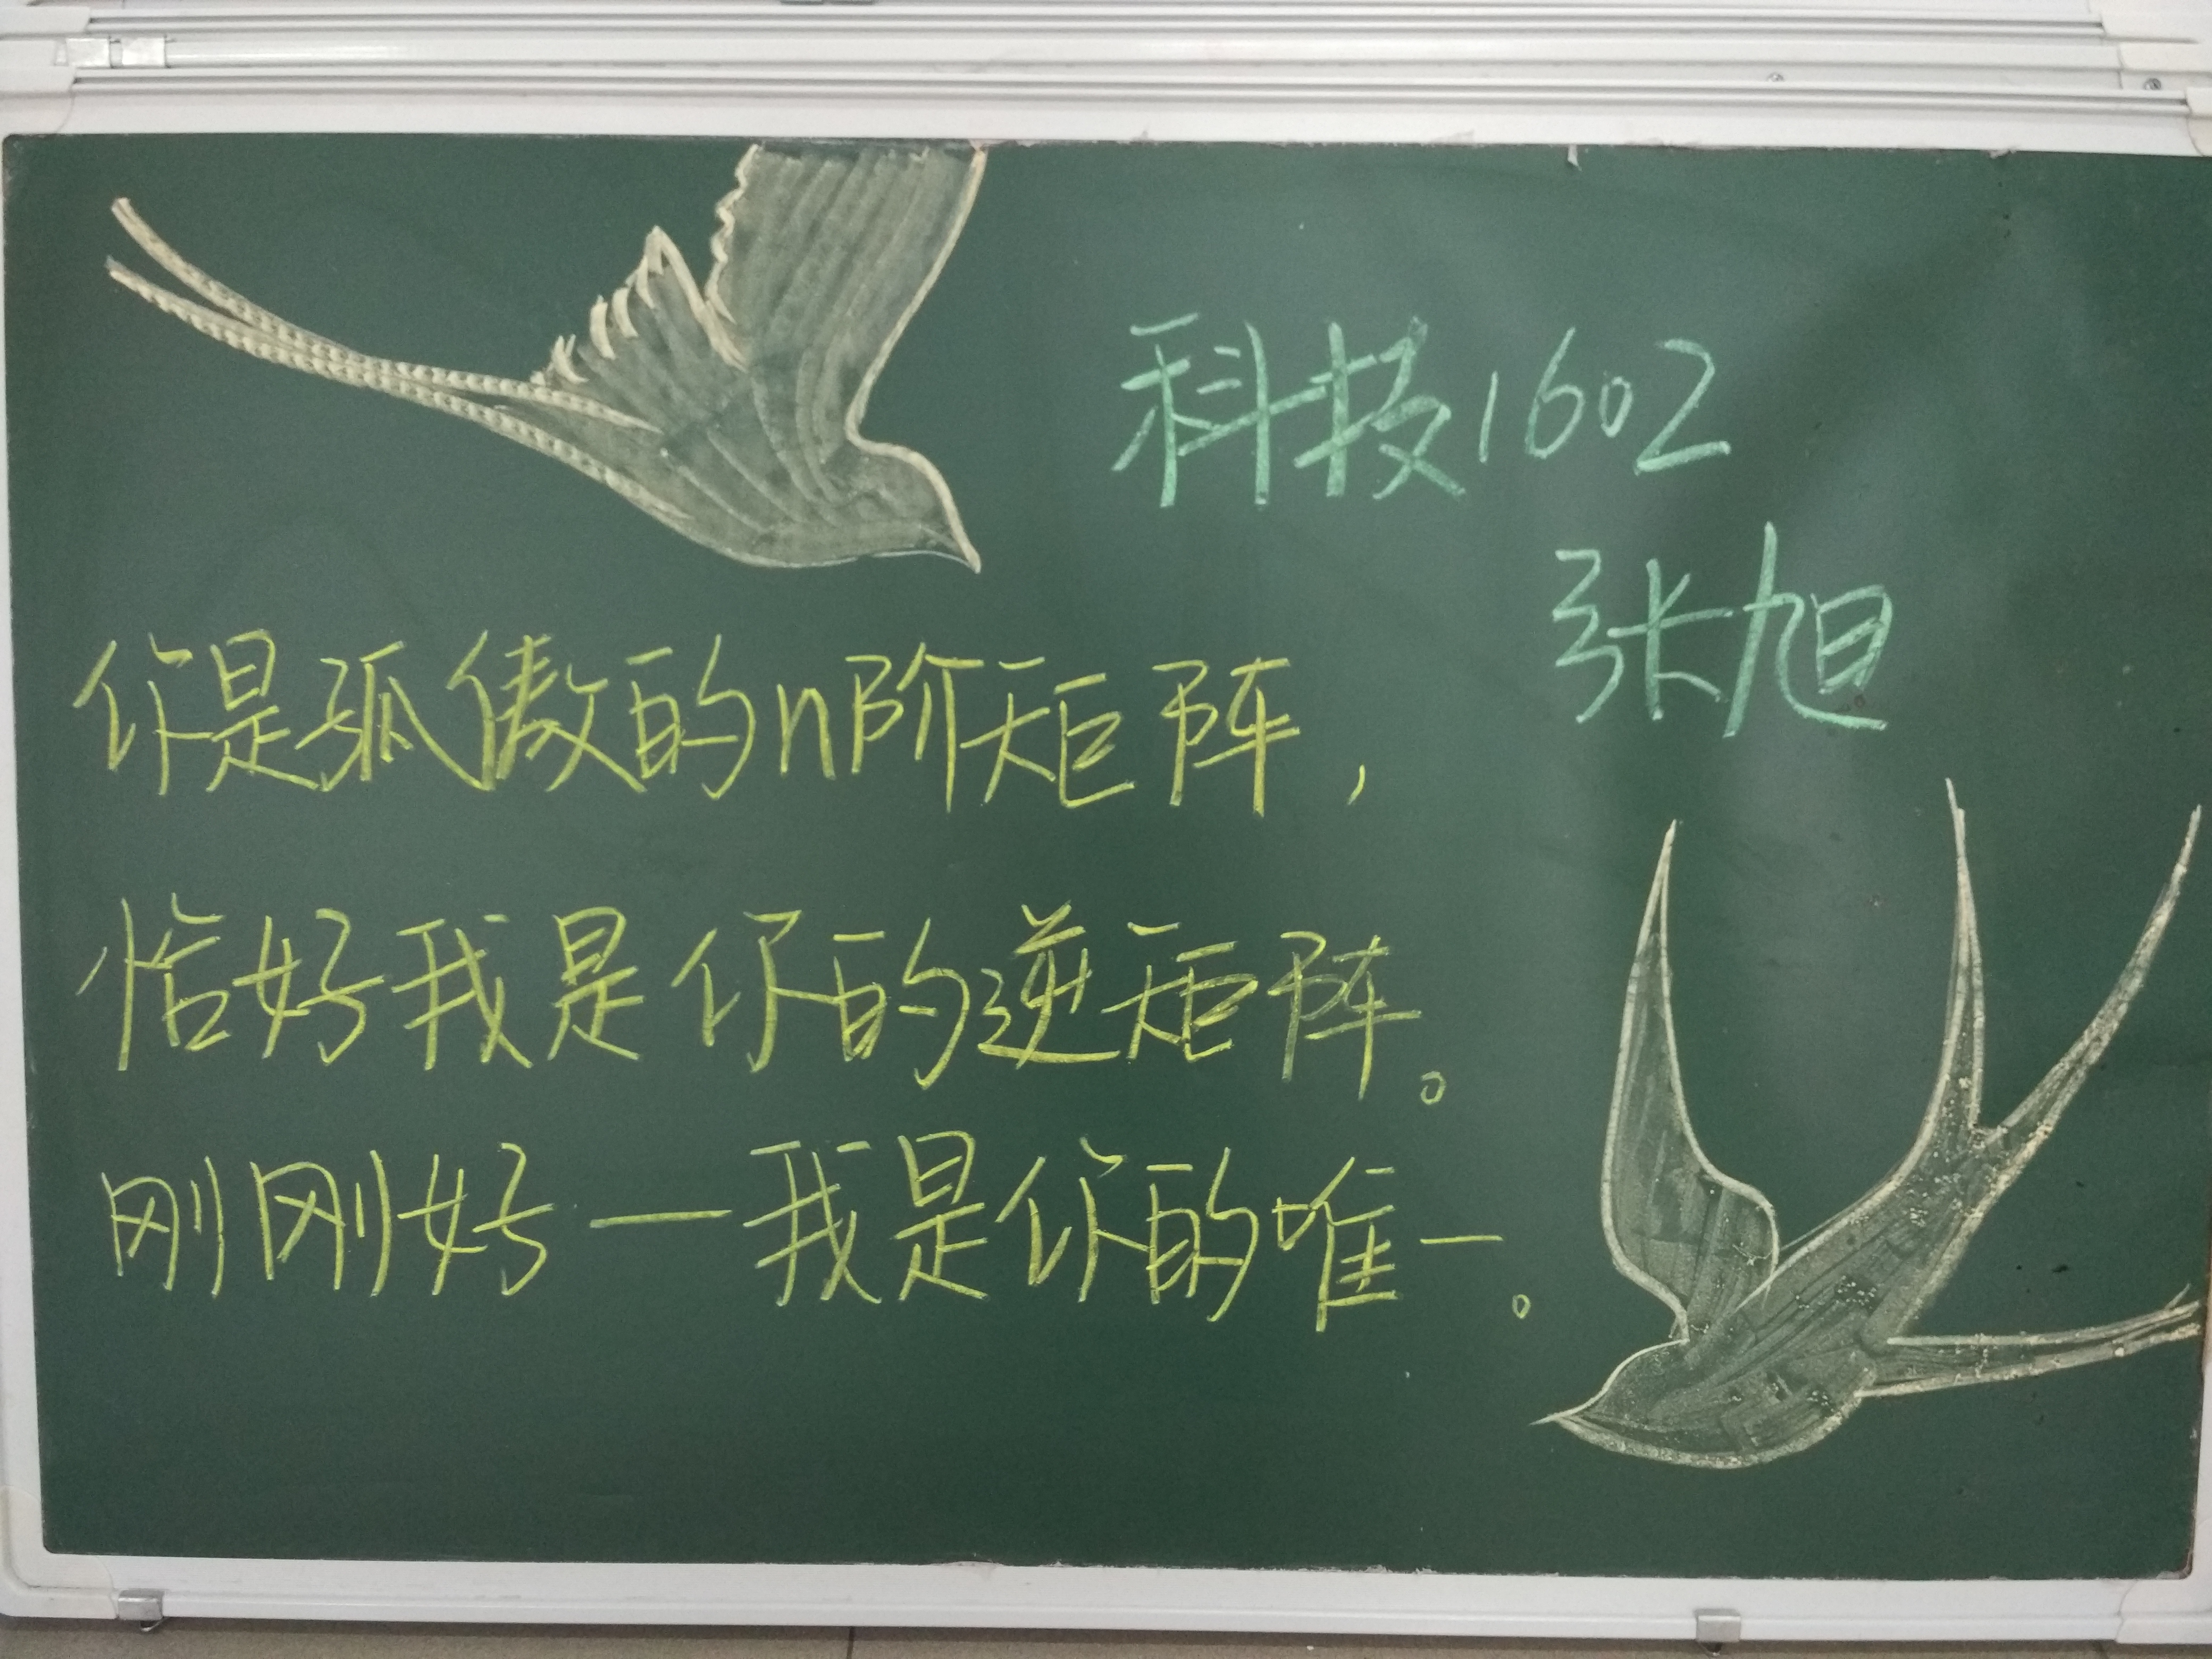 科技1602
张旭
你是孤傲的n阶矩阵，
恰好我是你的逆矩阵。
刚刚好—我是你的唯一。